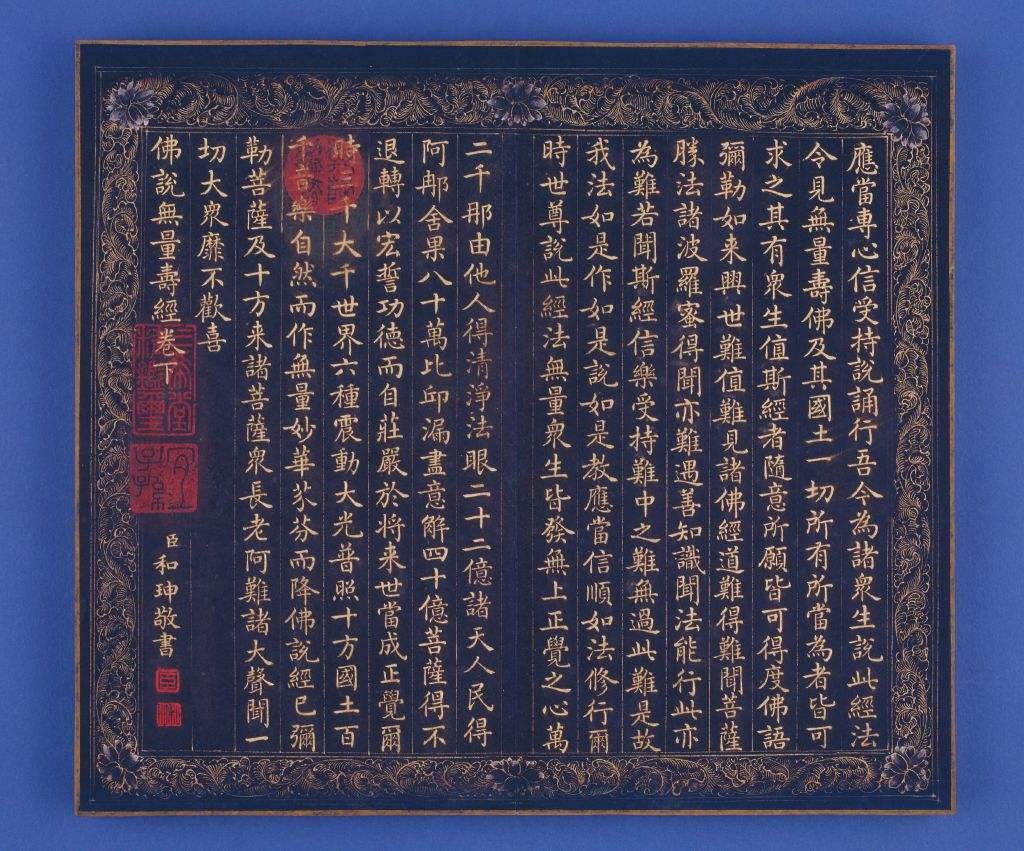 應當専心信受持說誦行吾今為諸衆生說此經法
令見無量壽佛及其國土一切所有所當為者皆可
求之其有衆生值斯經者隨意所願皆可得度佛語
彌勒如来興世難值難見諸佛經道難得難聞菩薩
勝法諸波羅蜜得聞亦難遇善知識聞法能行此亦
為難若聞斯經信樂受持難中之難無過此難是故
我法如是作如是說如是教應當信順如法修行爾
時世尊說此經法無量衆生皆發無上正覺之心萬
二千那由他人得清淨法眼二十二億諸天人民得
阿那舍果八十萬比邱漏盡意解四十億菩薩得不
退轉以宏誓功德而自莊嚴於将来世當成正覺爾
時三千大千世界六種震動大光普照十方國土百
千音樂自然而作無量妙華芬而降佛說經已彌
勒菩薩及十方来諸菩薩衆長老阿難諸大聲聞一
切大衆靡不歡喜
佛說無量壽經卷下
三希堂精鑑璽
宜子孫
臣和珅敬書
臣